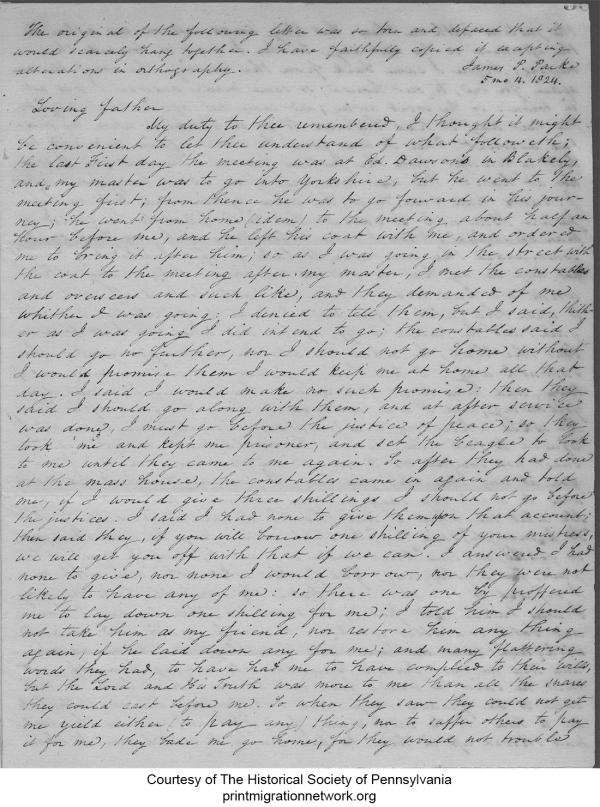 The original of the following letter was so torn and defaced that it
would scarcely hang together. I have faithfully copied it excepting
alterations in orthography. James P. Parke
5 mo 4. 1824.
Loving father
My duty to thee remembered, I thought it might
be convenient to let thee understand of what followeth;
the last First day the meeting was at Ed. Dawson's in Blakely,
and my master was to go into Yorkshire, but he went to the
meeting first; from thence he was to go forward in his jour-
ney; he went from home (idem) to the meeting about half an
hour before me, and he left his coat with me, and ordered
me to bring it after him; so as I was going in the street with
the coat to the meeting after my master, I met the constables
and overseers and such like, and they demanded of me
whither I was going; I denied to tell them, but I said, thith-
er as I was going I did intend to go; the constables said I
should go no further, nor I should not go home without
I would promise them I would keep me at home all that
day. I said I would make no such promise: then they
said I should go along with them, and at after service
was done, I must go before the justice of peace; so they
took me and kept me prisoner, and set the beagle to look
to me until they came to me again. So after they had done
at the mass house, the constables came in again and told
me, if I would give three shillings I should not go before
the justices. I said I had none to give them upon that account;
then said they, if you will borrow one shilling of your mistress,
we will get you off with that if we can. I answered I had
none to give, nor none I would borrow, nor they were not
likely to have any of me: so there was one by proffered
me to lay down one shilling for me; I told him I should
not take him as my friend, nor restore him any thing
again, if he laid down any for me; and many flattering
words they had, to have had me to have complied to their wills,
but the Lord and His Truth was more to me than all the snares
they could cast before me. So when they saw they could not get
me yield either (to pay any) thing, nor to suffer others to pay
it for me, they bade me go home, for they would not trouble
Courtesy of The Historical Society of Pennsylvania
printmigrationnetwork.org